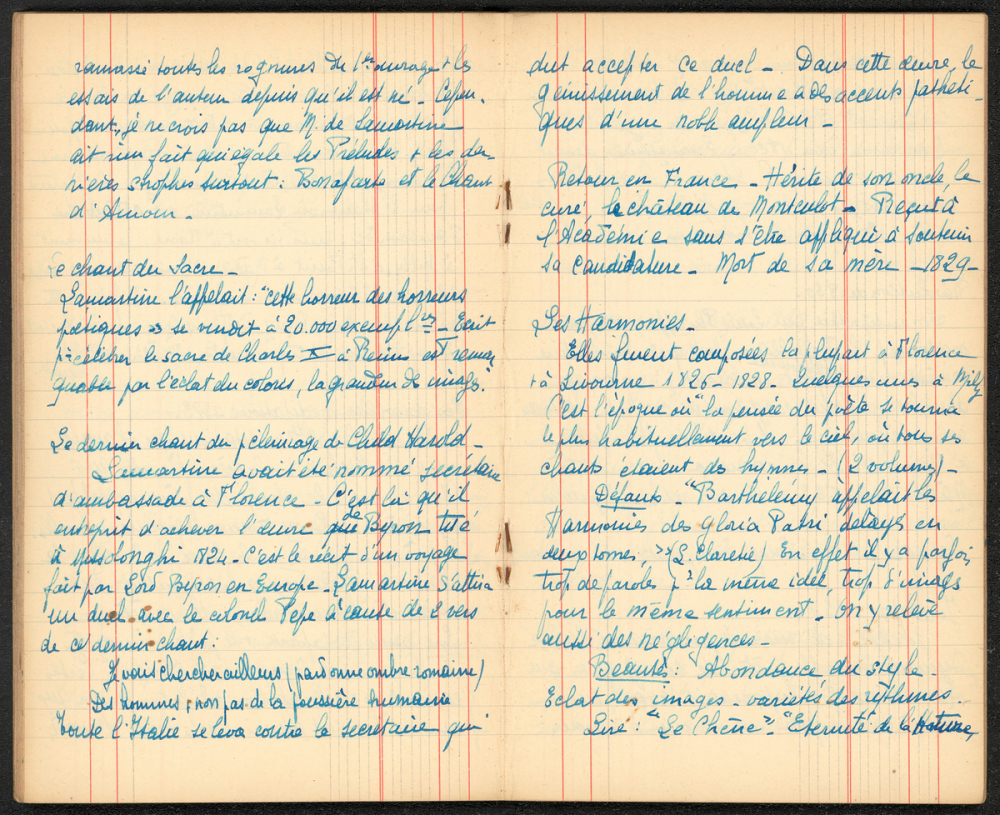 ramassé toutes les rognures de l'er ouvrage + les
essais de l'auteur depuis qu'il est né - Cepen-
dant, je ne crois pas que M. de Lamartine
ait rien fait qui égale les Préludes + les der-
nières strophes surtout : Bonaparte et le Chant
d'Amour -
Le chant du Sacre -
Lamartine l'appelait : "cette horreur des horreurs
poétiques » se vendit à 20.000 exempl res - Ecrit
pr célébrer le sacre de Charles X à Reims est remar
quable par l'éclat du coloris, la grandeur de images."
Le dernier chant du pèlerinage de Child Harold -
Lamartine avait été nommé secrétaire
d'ambassade à Florence - C'est là qu'il
entreprit d'achever l'œuvre de Byron tué
à Missolonghi 1824 - C'est le récit d'un voyage
fait par Lord Byron en Europe - Lamartine s'attira
un duel avec le colonel Pepe à cause de 2 vers
de ce dernier chant :
Je vais chercher ailleurs (pardonne ombre romaine)
Des hommes, + non pas de la poussière humaine
Toute l'Italie se leva contre le secrétaire qui
dut accepter ce duel - Dans cette œuvre, le
gémissement de l'homme a des accents pathéti-
ques d'une noble ampleur -
Retour en France - Hérite de son oncle, le
curé, le château de Montculot - Reçut à
l'Académie sans s'être appliqué à soutenir
sa candidature - Mort de sa mère - 1829 -
Les Harmonies -
Elles furent composées la plupart à Florence
+ à Livourne 1826 - 1828 - Quelques unes à Milly
C'est l'époque où "la pensée du poète se tourne
le plus habituellement vers le ciel, où tous ses
chants étaient des hymnes - (2 volumes) -
Défauts - "Barthélémy appelait les
Harmonies des Gloria Patri délayés en
deux tomes, » (L. Claretie) En effet il y a parfois
trop de paroles pr la même idée, trop d'images
pour le même sentiment - On y relève
aussi des négligences -
Beautés : Abondance du style -
Eclat des images - variétés des rythmes -
Lire : "Le Chêne » - "Eternité de la Nature,